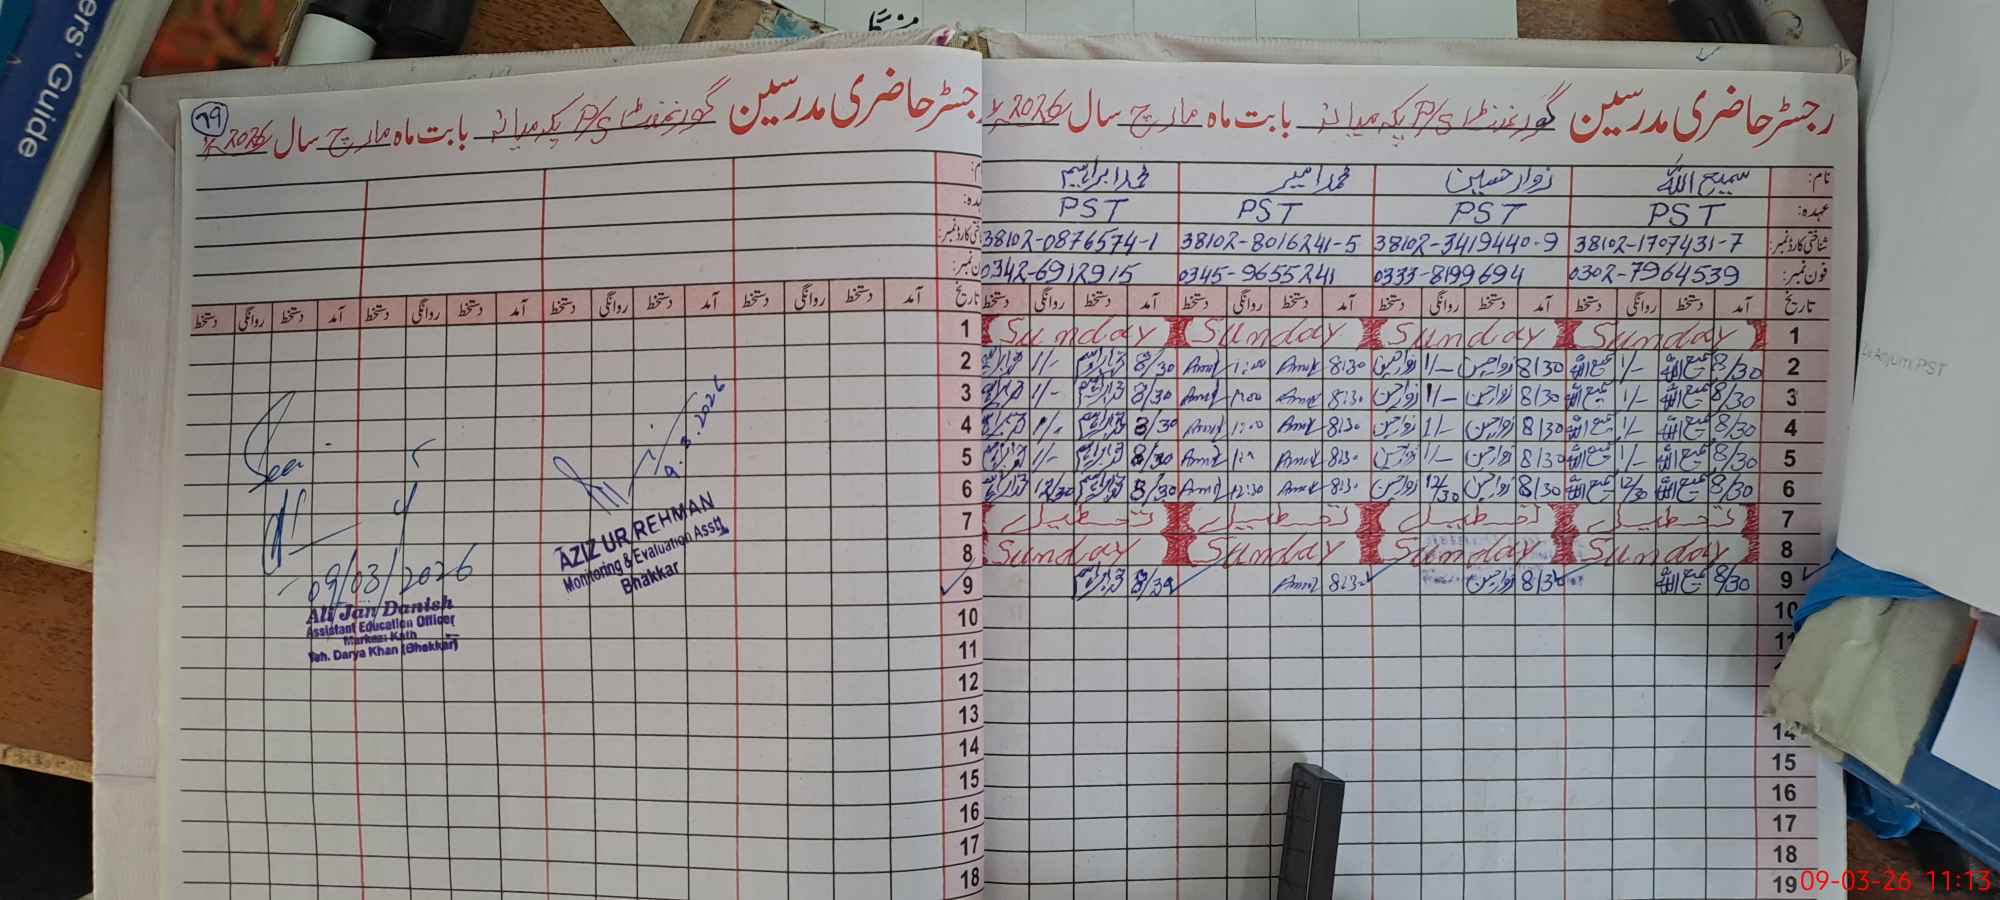 ers' Guide
79
رجسٹر حاضری مدرسین گورنمنٹ P/S پکہ میدانہ بابت ماہ مارچ سال 2026ء
رجسٹر حاضری مدرسین گورنمنٹ P/S پکہ میدانہ بابت ماہ مارچ سال 2026ء
نام: سمیع اللہ زوار حسین محمد امیر محمد ابراہیم
عہدہ: PST PST PST PST
شناختی کارڈ نمبر: 38102-1707431-7 38102-3419440-9 38102-8016241-5 38102-0876574-1
فون نمبر: 0302-7964539 0333-8199694 0345-9655241 0342-6912915
تاریخ آمد دستخط روانگی دستخط آمد دستخط روانگی دستخط آمد دستخط روانگی دستخط آمد دستخط روانگی دستخط
1 Sunday Sunday Sunday Sunday
2 8/30 سمیع اللہ 1/- سمیع اللہ 8/30 زوار حسین 1/- زوار حسین 8:30 Amir 1:00 Amir 8/30 محمد ابراہیم 1/-
3 8/30 سمیع اللہ 1/- سمیع اللہ 8/30 زوار حسین 1/- زوار حسین 8:30 Amir 1:00 Amir 8/30 محمد ابراہیم 1/-
4 8/30 سمیع اللہ 1/- سمیع اللہ 8/30 زوار حسین 1/- زوار حسین 8:30 Amir 1:00 Amir 8/30 محمد ابراہیم 1/-
5 8/30 سمیع اللہ 1/- سمیع اللہ 8/30 زوار حسین 1/- زوار حسین 8:30 Amir Amir 8/30 محمد ابراہیم 1/-
6 8/30 سمیع اللہ 12/30 سمیع اللہ 8/30 زوار حسین 12/30 زوار حسین 8:30 Amir 12:30 Amir 8/30 محمد ابراہیم 12/30
7 تعطیل تعطیل تعطیل تعطیل
8 Sunday Sunday Sunday Sunday
9 8/30 سمیع اللہ 8/30 زوار حسین 8:30 Amir 8/30 محمد ابراہیم
10
11
14
15
16
17
18
19
تاریخ آمد دستخط روانگی دستخط آمد دستخط روانگی دستخط آمد دستخط روانگی دستخط آمد دستخط روانگی دستخط
1
2
3
4
5
6
7
8
9
10
11
12
13
14
15
16
17
18
Seen
09/03/2026
Ali Jan Danish
Assistant Education Officer
Markaz: Kath
Teh. Darya Khan (Bhakkar)
9.3.2026
AZIZ UR REHMAN
Monitoring & Evaluation Asstt
Bhakkar
Anjum PST
09-03-26 11:13